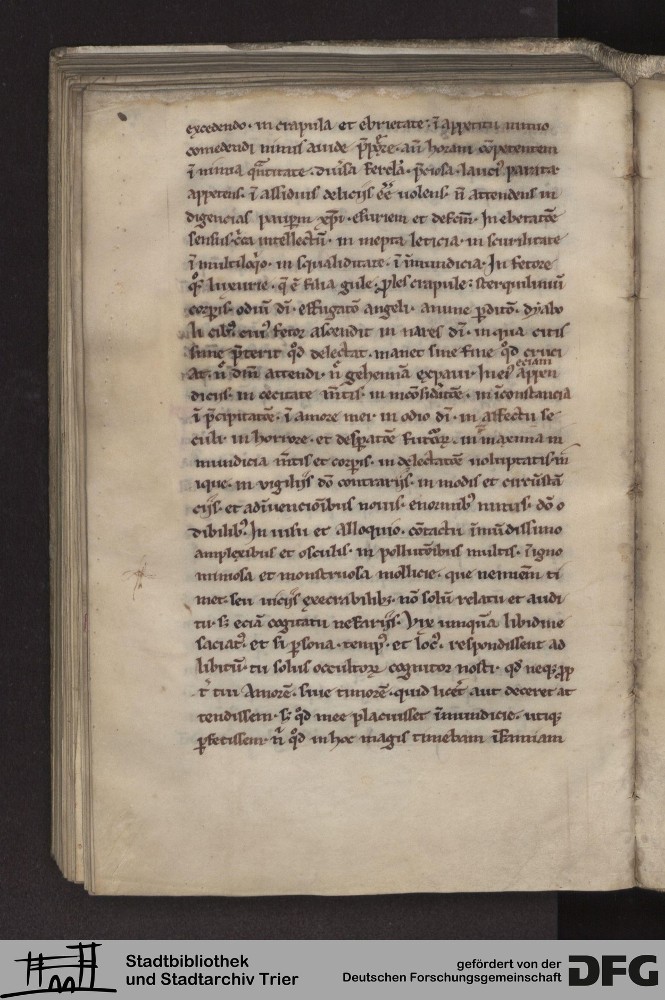 excedendo · in crapula et ebrietate · ī appetitu nimio
comedendi nimis auide · an̄ horam cōpetentem
ī nimia q̄ntitate · diuꝰsa fercła · p̄ciosa · lauciꝰ parata
appetens · ī assiduis deliciis eē uolens · n̄ attendens in
digencias paupm̄ xp̄i · esuriem et defcm̄ · In ebetatōe
sensus · intellectū · in inepta leticia · in scurilitate
ī multilq̄o · in squaliditate · ī īmundicia · In fetore
luxurie · q̄ ē filia gule · ꝓles crapule · sterquiliniū
corꝑis · odiū dī · effugatō angeli · anime ꝑditō · dyabo
li cibꝰ cuiꝰ fetor ascendit in nares dī · in qua citis
sime p̄terit qd̄ delectat · manet sine fine qd̄ cruci
at · attendi · gehennā expaui · In eiꝰ eciam appen
diciis · in cecitate m̄tis · in incōsidatōe · in īconstancia
ī p̄cipitatōe · ī amore mei · in odio dī · in affectu se
culi · in horrore · et despatōe futoꝝ · in maxima in
mundicia m̄tis et corꝑis · in delectatōe uoluptatis in
ique · in vigiliis dō contrariis · in modis et circūstā
ciis · et adīuencioībus nouis · enormibꝰ nimis · dō o
dibilibꝰ · In uisu et alloquio · cōtactu īmūdissimo
amplexibus et osculis · in pollutōibus multis · īgno
miniosa et monstruosa mollicie · que neminem̄ ti
met · seu uiciis execrabilibꝫ · nō solū relatu et audi
tu · sꝫ eciā cogitatu nefariis · Vix umquā libidine
saciatꝰ · et si ꝑsona · tempꝰ · et locꝰ · respondissent ad
libitū · tu solus occultoꝝ cognitor nosti · qd̄ neqꝫ ꝓp
tꝰ tui Amorē · siue timorē · quid licet̄ aut deceret at
tendissem · sꝫ qd̄ mee placuisset īmundicie · utiqꝫ
ꝑfecissem · n̄ qd̄ in hoc magis timebam īfamiam
Stadtbibliothek
und Stadtarchiv Trier
gefördert von der
Deutschen Forschungsgemeinschaft
DFG